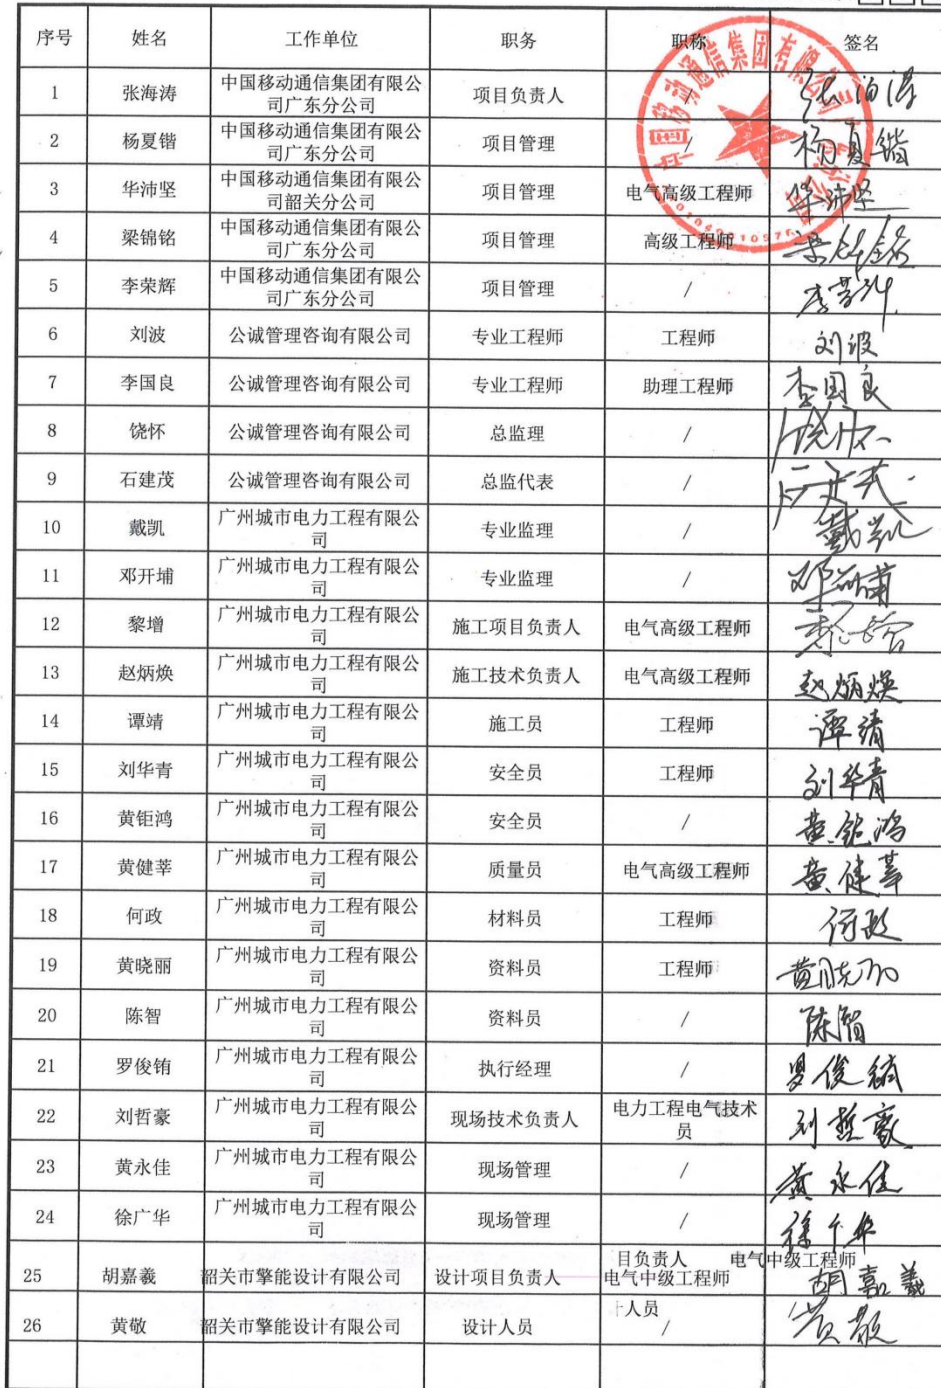 序号 姓名 工作单位 职务 职称 签名
1 张海涛 中国移动通信集团有限公 项目负责人 /
司广东分公司
2 杨夏锴 中国移动通信集团有限公 项目管理 / 杨夏锴
司广东分公司
3 华沛坚 中国移动通信集团有限公 项目管理 电气高级工程师 华沛坚
司韶关分公司
4 梁锦铭 中国移动通信集团有限公 项目管理 高级工程师 梁锦铭
司广东分公司
5 李荣辉 中国移动通信集团有限公 项目管理 / 李荣辉
司广东分公司
6 刘波 公诚管理咨询有限公司 专业工程师 工程师 刘波
7 李国良 公诚管理咨询有限公司 专业工程师 助理工程师 李国良
8 饶怀 公诚管理咨询有限公司 总监理 / 饶怀
9 石建茂 公诚管理咨询有限公司 总监代表 /
10 戴凯 广州城市电力工程有限公 专业监理 / 戴凯
司
11 邓开埔 广州城市电力工程有限公 专业监理 / 邓开埔
司
12 黎增 广州城市电力工程有限公 施工项目负责人 电气高级工程师
司
13 赵炳焕 广州城市电力工程有限公 施工技术负责人 电气高级工程师 赵炳焕
司
14 谭靖 广州城市电力工程有限公 施工员 工程师 谭靖
司
15 刘华青 广州城市电力工程有限公 安全员 工程师 刘华青
司
16 黄钜鸿 广州城市电力工程有限公 安全员 / 黄钜鸿
司
17 黄健莘 广州城市电力工程有限公 质量员 电气高级工程师 黄健莘
司
18 何政 广州城市电力工程有限公 材料员 工程师 何政
司
19 黄晓丽 广州城市电力工程有限公 资料员 工程师 黄晓丽
司
20 陈智 广州城市电力工程有限公 资料员 / 陈智
司
21 罗俊销 广州城市电力工程有限公 执行经理 /
司
22 刘哲豪 广州城市电力工程有限公 现场技术负责人 电力工程电气技术 刘哲豪
司 员
23 黄永佳 广州城市电力工程有限公 现场管理 / 黄永佳
司
24 徐广华 广州城市电力工程有限公 现场管理 / 徐广华
司
目负责人 电气中级工程师
25 胡嘉羲 韶关市擎能设计有限公司 设计项目负责人 电气中级工程师 胡嘉羲
人员
26 黄敬 韶关市擎能设计有限公司 设计人员 / 黄敬